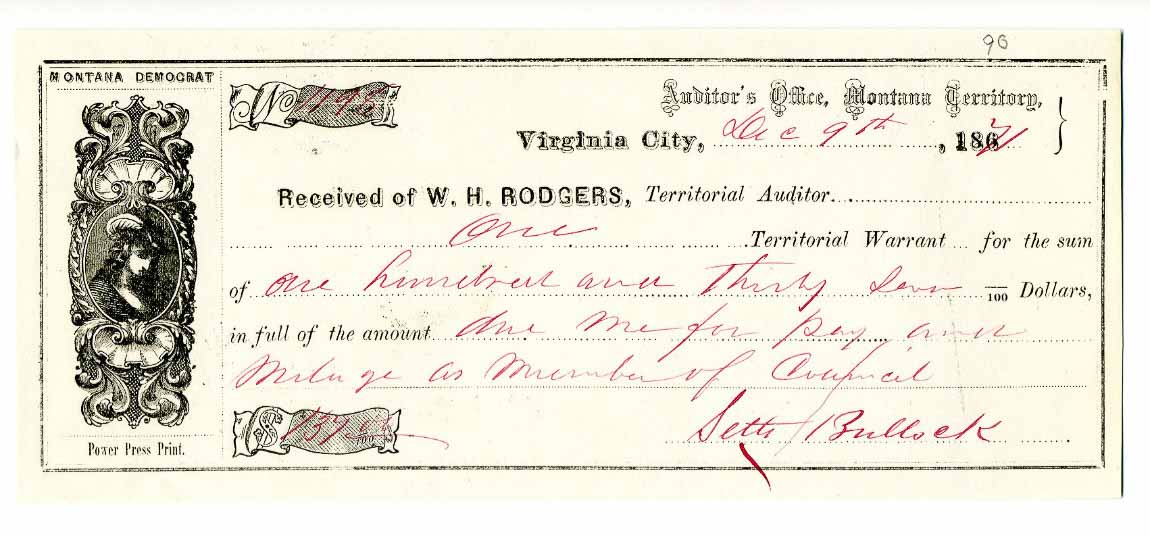 90
MONTANA DEMOCRAT
No 1195
Auditor's Office, Montana Territory,
Virginia City, Dec 9th, 1871
Received of W. H. RODGERS, Territorial Auditor
One Territorial Warrant for the sum
of one hundred and thirty seven /100 Dollars,
in full of the amount due me for pay and
Milage as Member of Council
$ 137 /100
Seth Bullock
Power Press Print.